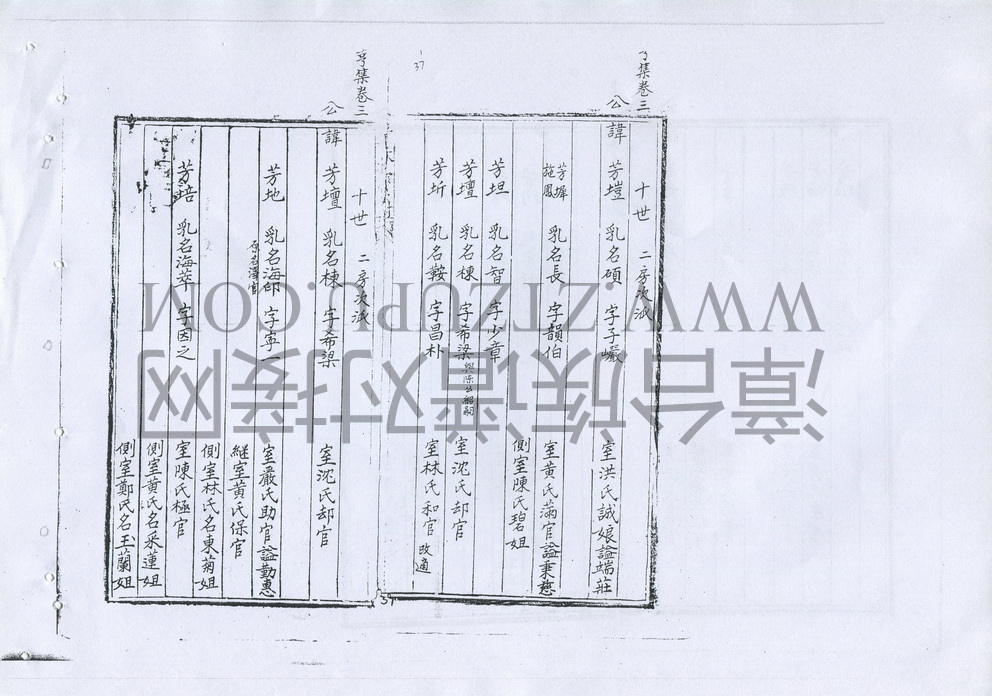 亨集卷三
十世 二房次派
公諱 芳塏 乳名碩 字子巖 室洪氏誠娘諡端莊
芳墀 乳名長 字韻伯 室黃氏滿官諡秉慈
側室陳氏碧姐
芳坦 乳名智 字少章
芳壇 乳名棟 字希梁 興除公紹嗣 室沈氏却官
芳圻 乳名鞍 字昌朴 室林氏和官 改適
37
亨集卷三
十世 二房次派
公諱 芳壇 乳名棟 字希梁 室沈氏却官
芳地 乳名海印 字寧一 室嚴氏助官諡勤惠
原名澤官
繼室黃氏保官
側室林氏名東菊姐
芳培 乳名海萃 字因之 室陳氏極官
側室黃氏名采蓮姐
側室鄭氏名玉蘭姐
37
WWW.ZTZUPU.COM
漳台族谱对接网